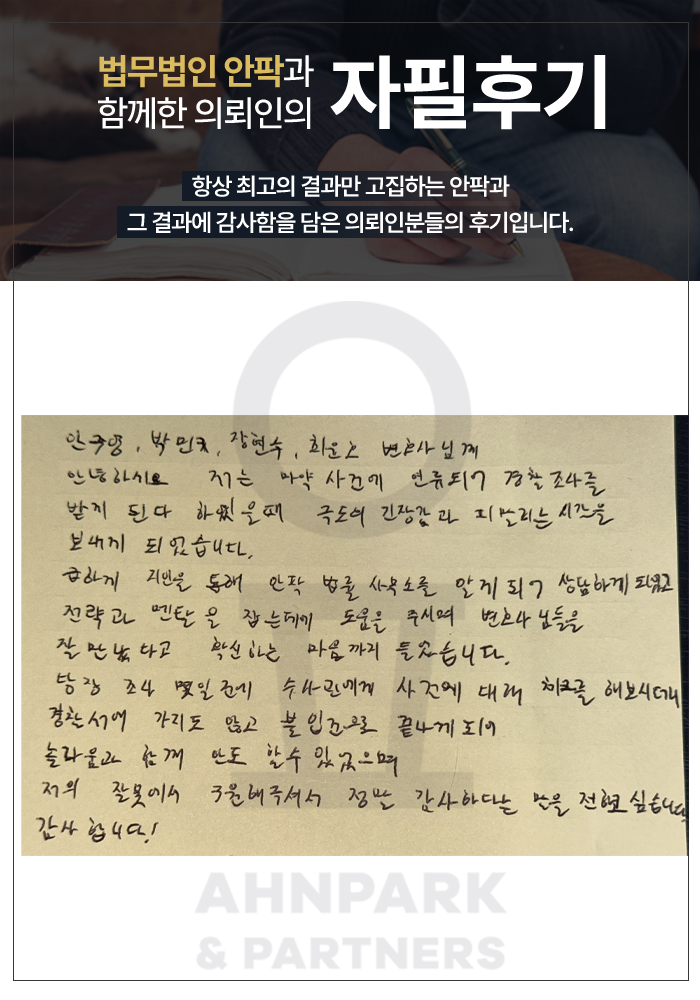 법무법인 안팍과
함께한 의뢰인의
자필후기
항상 최고의 결과만 고집하는 안팍과
그 결과에 감사함을 담은 의뢰인분들의 후기입니다.
안주영, 박민규, 장현수, 최운 변호사님께
안녕하시요 저는 마약 사건에 연류되어 경찰조사를
받게 된다 하였을때 극도의 긴장감과 피말리는 시간을
보내게 되었습니다.
급하게 지인을 통해 안팍 법률 사무소를 알게 되어 상담하게 되었고
전략과 멘탈을 잡는데에 도움을 주시며 변호사님들을
잘 만났다고 확신하는 마음까지 들었습니다.
당장 조사 몇일전에 수사관에게 사건에 대해 체크를 해보시더니
경찰서에 가지도 않고 불입건으로 끝나게 되어
놀라움과 함께 안도 할수 있었으며
저의 잘못에서 구원해주셔서 정말 감사하다는 말을 전하고 싶습니다
감사합니다!
AHNPARK
& PARTNERS